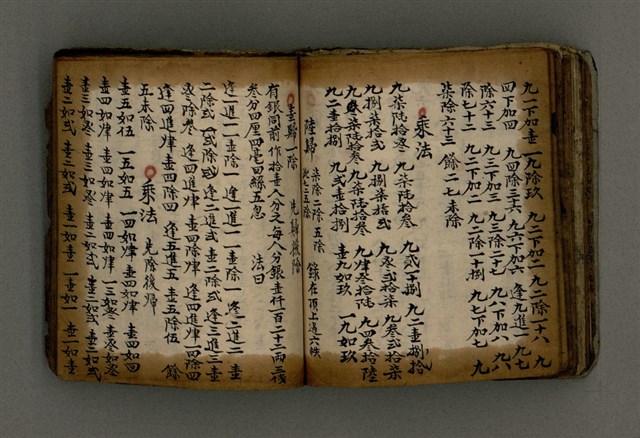 九一下加壹 一九除玖 九二下加二 九二除一十八 九
四下加四 九四除三十六 九六下加六 逢九進一 九七
除六十三 九三下加三 九三除二十七 九八下加八 九八
除七十二 九二下加二 九二除一十捌 九七下加七 九
柒除六十三 餘二七未除
乘法 九貳一十捌 九二壹捌
九柒陸拾叁 九柒陸拾叁 九叁貳拾柒 九叁貳拾柒
九捌柒拾弍 九捌柒拾弍 九肆叁拾陸 九四叁拾陸
九二壹拾捌 九弍壹拾捌 壹九如玖 一九如玖
陸歸 柒除二除五除 餘在頂上進六帙
壹歸一除 先歸後除
有銀同前作拾壹人分之每人分銀壹仟一百二十二両三戋
叁分四厘四毫四絲五忽 法曰
逢一進一 壹除一 逢一進一 一壹除一 逢二進二 壹
二除弍 一弍除弍 逢二進弍 壹二除弍 逢三進三 壹
叁除叁 逢四進肆 壹四除肆 逢四進肆 一肆除四
逢四進肆 壹四除四 逢五進五 壹五除伍 餘
五未除
乘法 先除後歸
壹五如伍 一五如五 一四如肆 壹四如肆 壹四如四
壹四如肆 壹四如肆 壹四如肆 一三如叁 壹叁如叁
壹三如叁 壹三如叁 壹二如弍 壹二如弍 壹二如弍
壹二如弍 壹二如弍 壹一如壹 一壹如一 壹一如壹